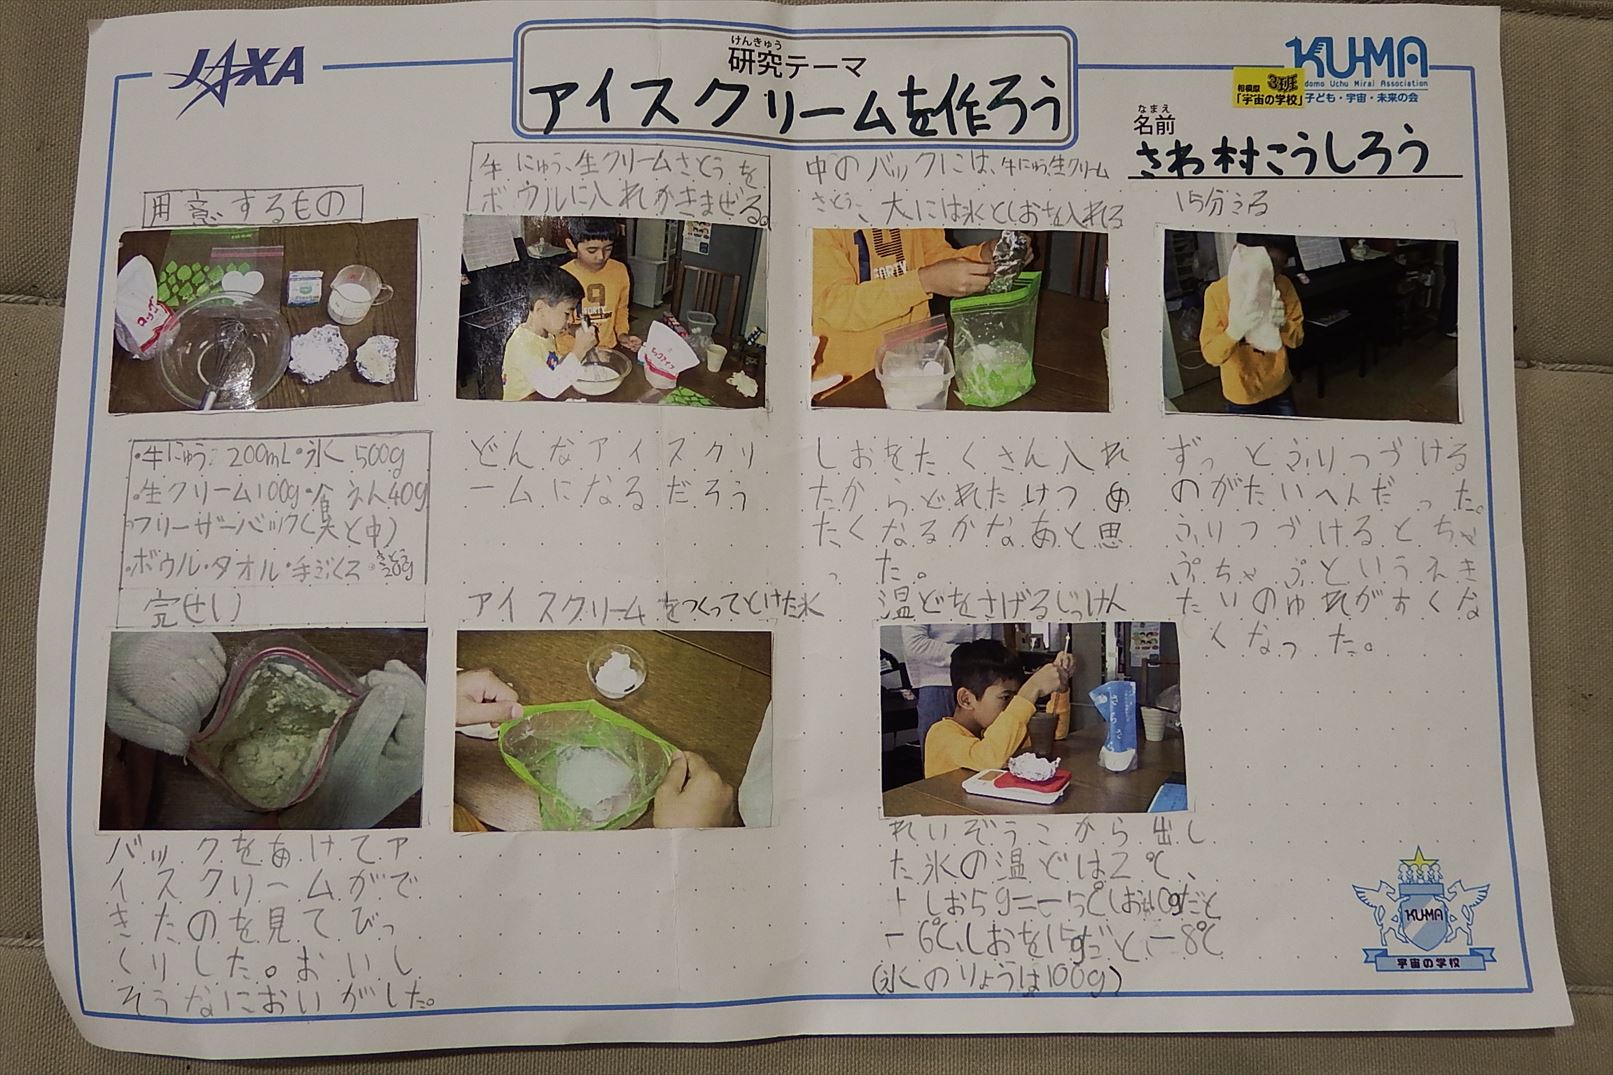 JAXA
けんきゅう
研究テーマ
アイスクリームを作ろう
KUMA
Kodomo Uchu Mirai Association
子ども・宇宙・未来の会
相模原
3班
「宇宙の学校」
なまえ
名前
さわ村こうしろう
用意するもの
・牛にゅう 200mL・氷 500g
・生クリーム100g・食えん40g
・フリーザーバック(大と中)
・ボウル・タオル・手ぶくろ・さとう20g
牛にゅう、生クリームさとうを
ボウルに入れかきまぜる。
どんなアイスクリ
ームになるだろう
中のバックには、牛にゅう生クリーム
さとう、大には氷としおを入れる
しおをたくさん入れ
たからどれだけつめ
たくなるかなあと思
った。
15分ふる
ずっとふりつづける
のがたいへんだった。
ふりつづけるとちゃ
ぷちゃぷというえき
たいのゆれがすくな
くなった。
完せい
バックをあけてア
イスクリームがで
きたのを見てびっ
くりした。おいし
そうなにおいがした。
アイスクリームをつくってとけた氷
温どをさげるじっけん
れいぞうこから出し
た氷の温どは2℃、
+しお5g=-5℃しお10gだと
-6℃、しおを15gだと、-8℃
(氷のりょうは100g)
KUMA
宇宙の学校